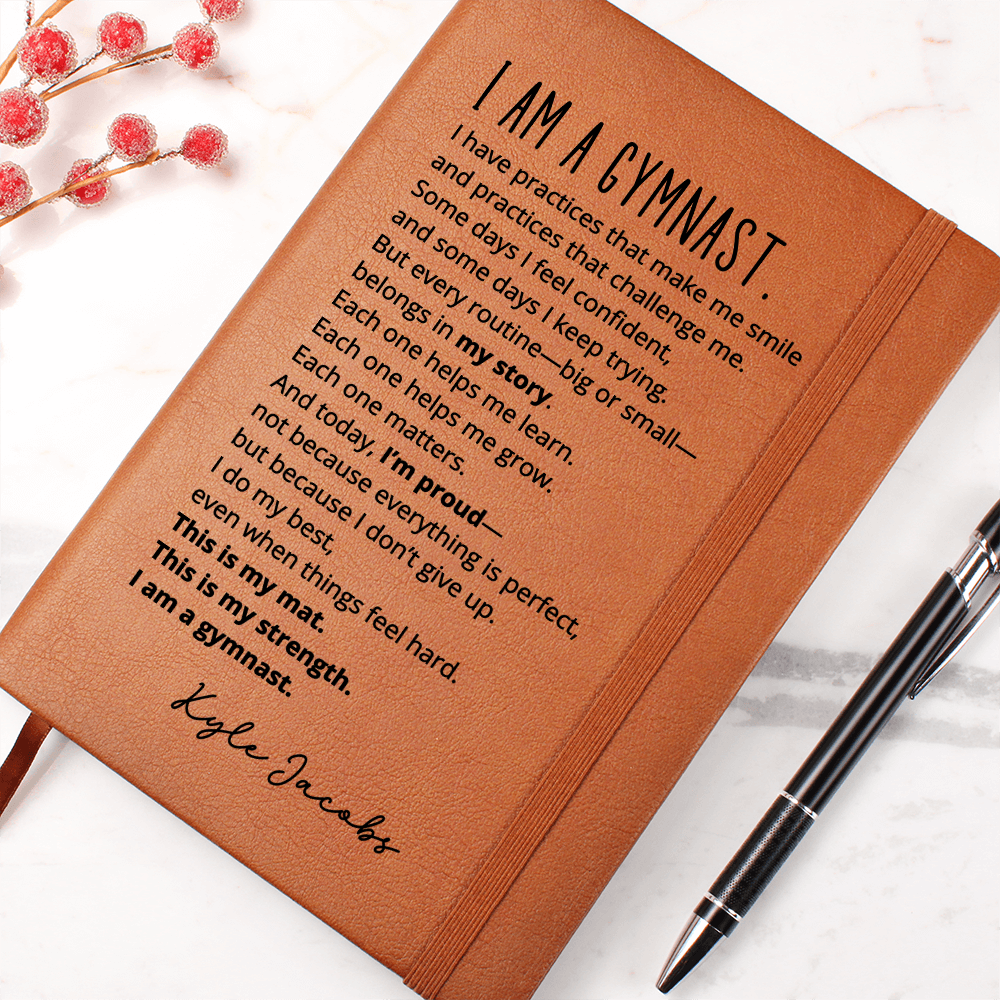 I AM A GYMNAST.
I have practices that make me smile
and practices that challenge me.
Some days I feel confident,
and some days I keep trying.
But every routine—big or small—
belongs in my story.
Each one helps me learn.
Each one helps me grow.
Each one matters.
And today, I'm proud—
not because everything is perfect,
but because I don't give up.
I do my best,
even when things feel hard.
This is my mat.
This is my strength.
I am a gymnast.
Kyle Jacobs